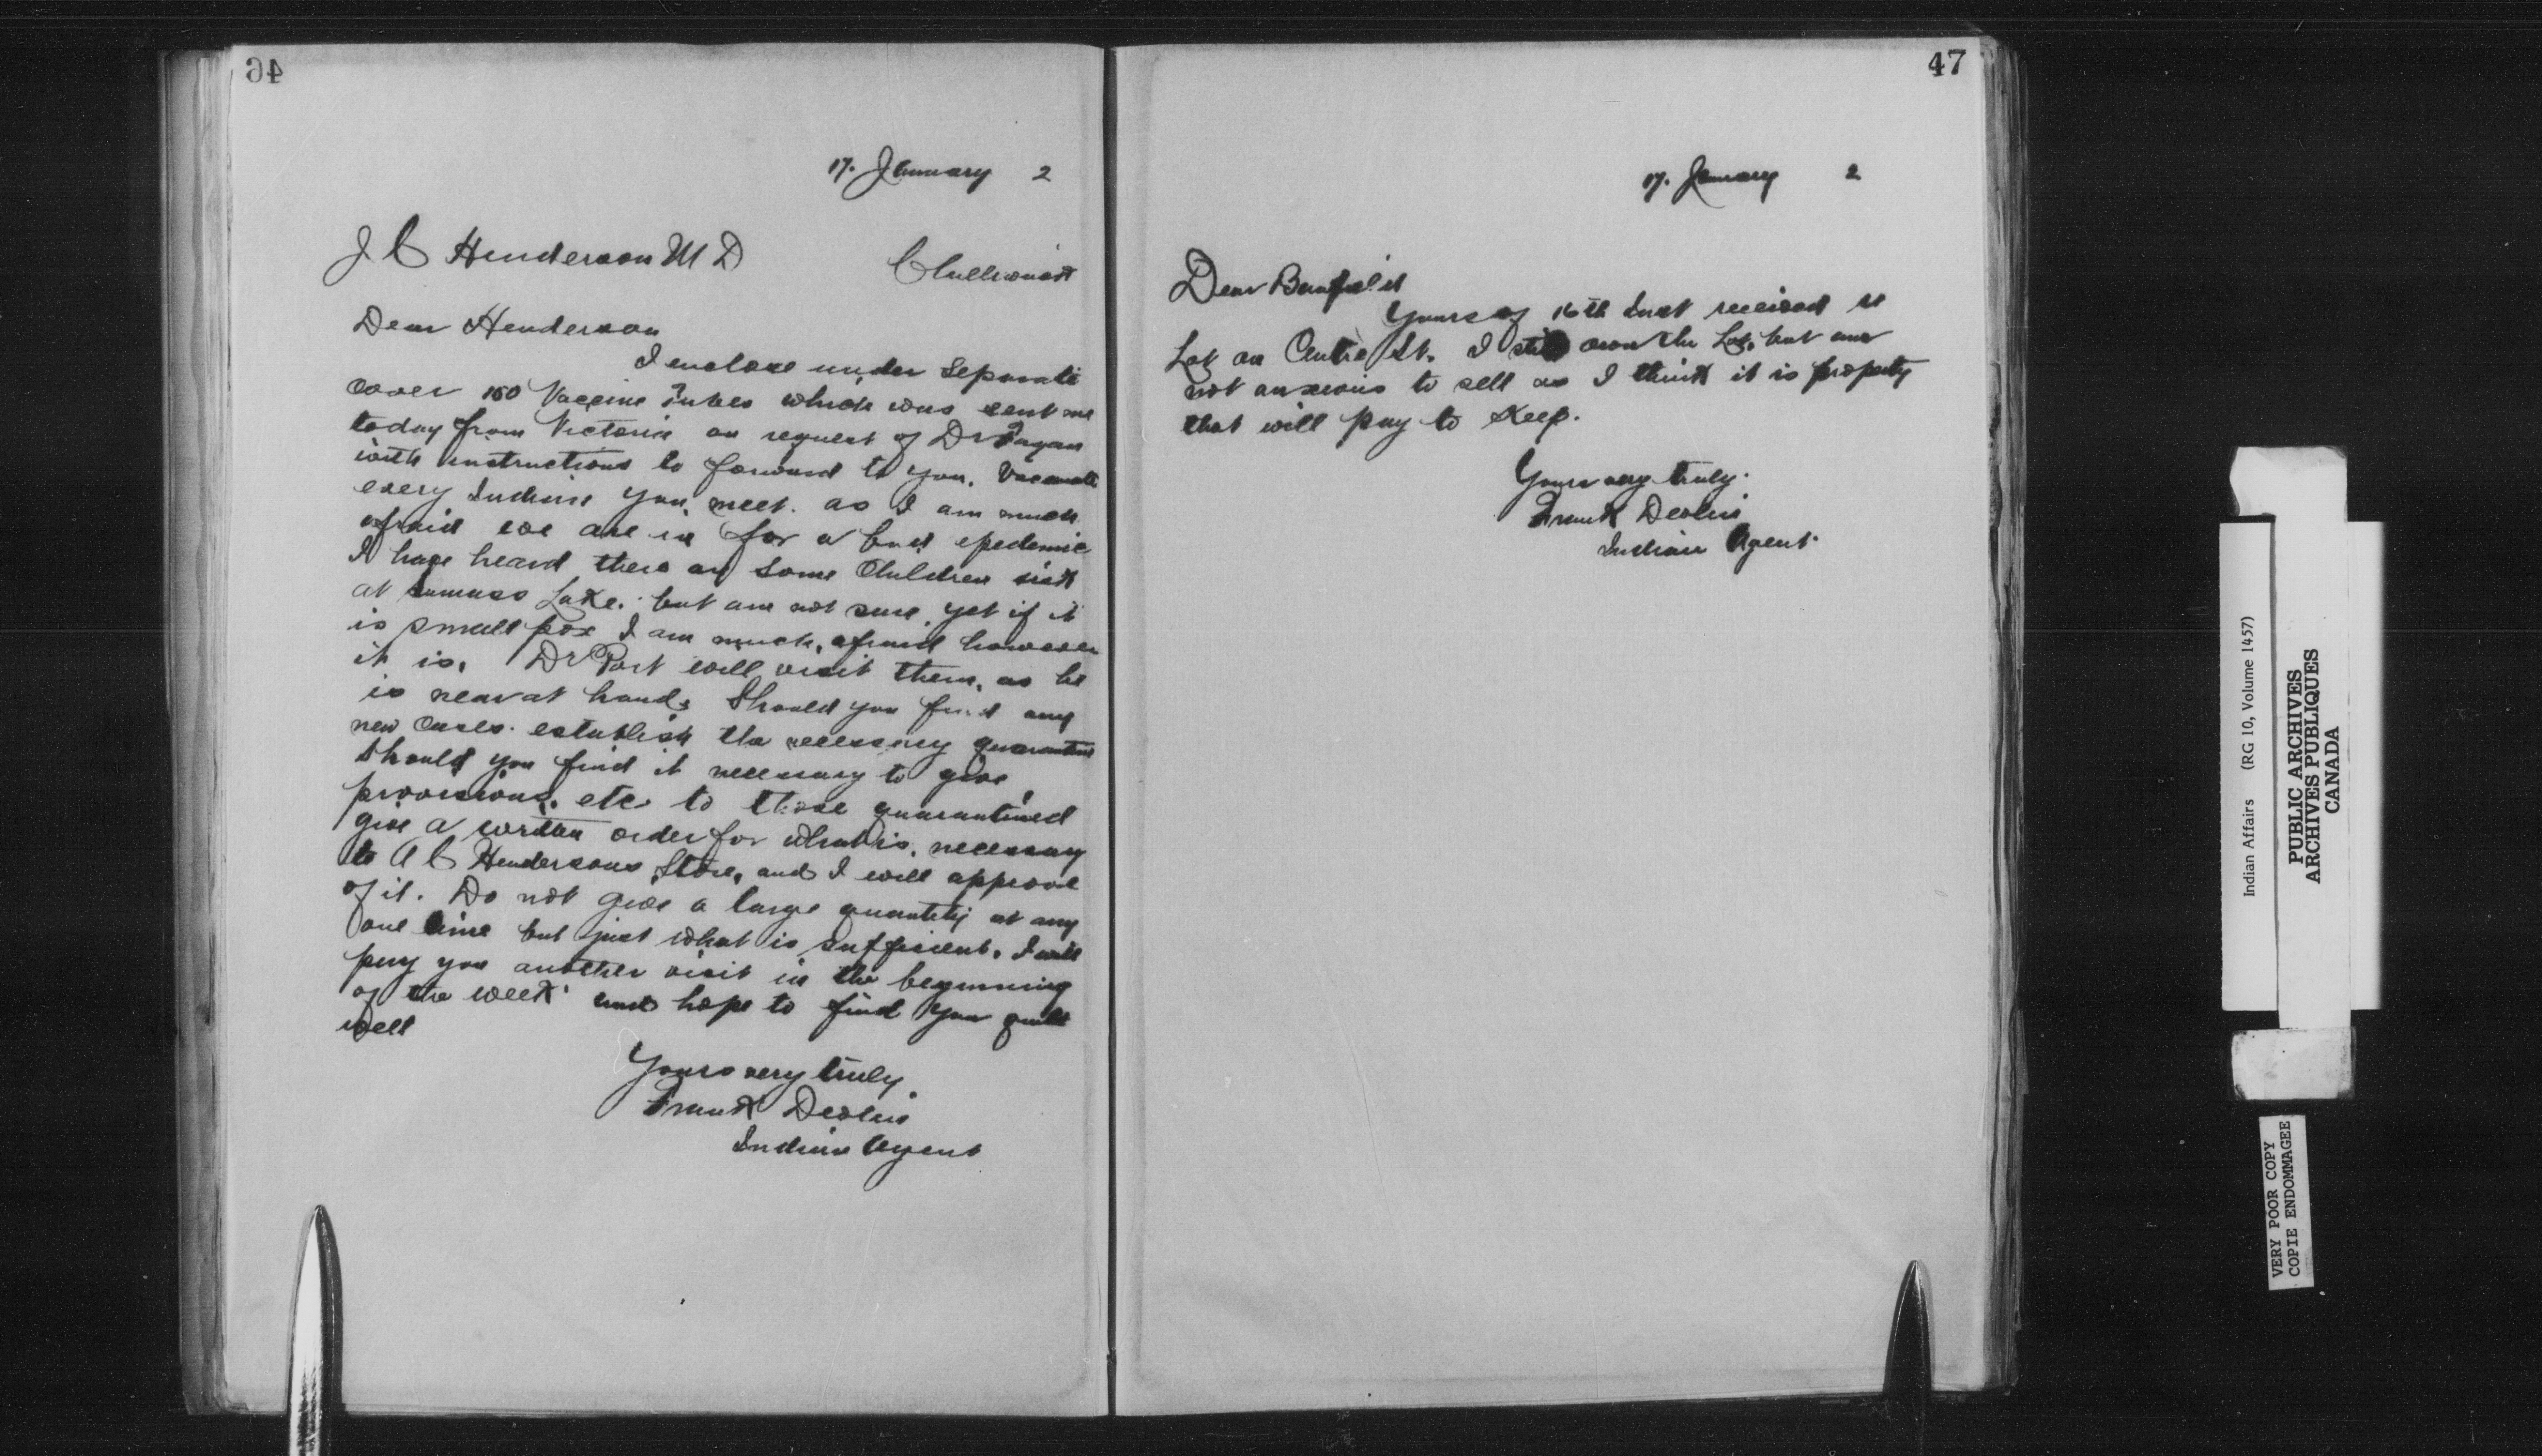 46
17. January 2
J C Henderson M D
Chilliwack
Dear Henderson
I enclose under Separate
cover 150 Vaccine Tubes which was sent me
today from Victoria on request of Dr Fagan
with instructions to forward to you. Vaccinate
every Indian you meet. as I am much
afraid we are in for a bad epedemic
I have heard there are some Children sick
at Sumass Lake. but am not sure yet if it
is small pox I am much afraid however
it is. Dr Port will visit them, as he
is near at hand. Should you find any
new Cases. establish the necessary quarantine
Should you find it necessary to give
provisions. etc to those quarantined
give a written order for what is necessary
to A C Hendersons Store, and I will approve
of it. Do not give a large quantity at any
one time but just what is sufficient. I will
pay you another visit in the beginning
of the week and hope to find you quite
well
Yours very truly
Frank Devlin
Indian Agent
47
17. January 2
Dear
Yours of 16th Inst received re
Lot on Centre St. I still own the Lot, but am
not anxious to sell as I think it is property
that will pay to Keep.
Yours very truly.
Frank Devlin
Indian Agent.
Indian Affairs (RG 10, Volume 1457)
PUBLIC ARCHIVES
ARCHIVES PUBLIQUES
CANADA
VERY POOR COPY
COPIE ENDOMMAGEE